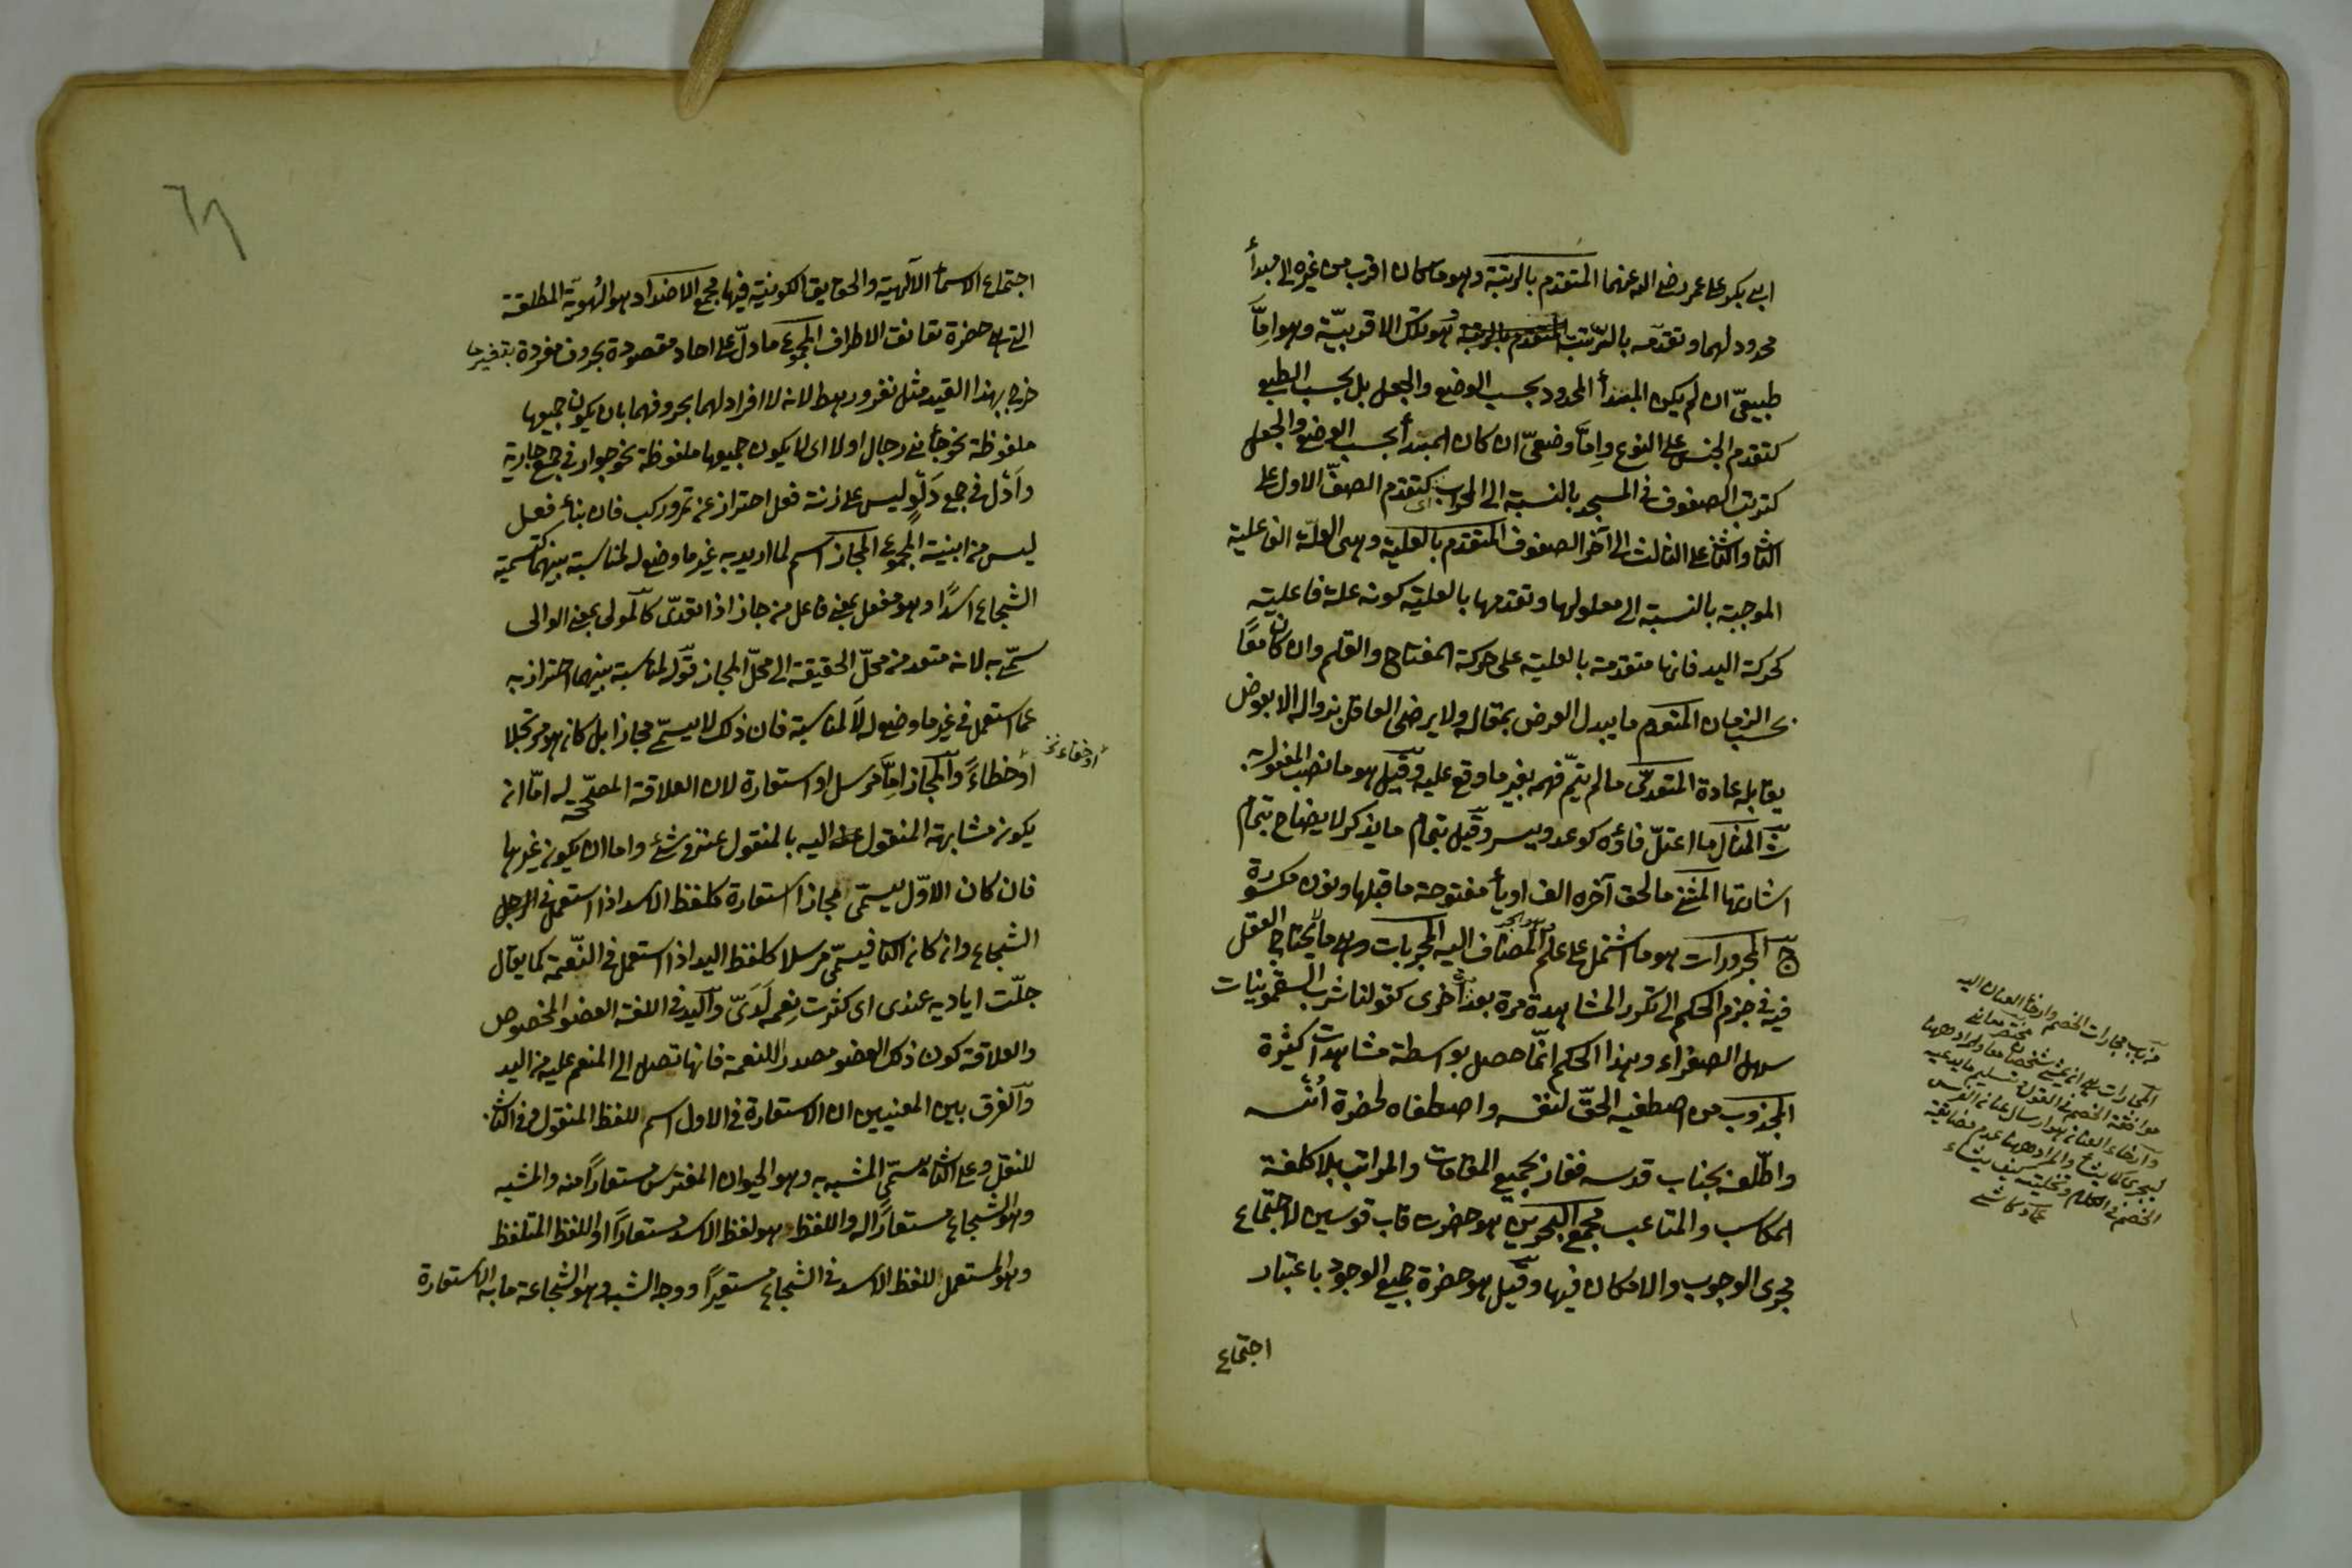 ابى بكر على عمر رضى الله عنهما المتقدم بالرتبة وهو ما كان اقرب من غيره الى مبدأ
محدود لهما وتقدمه بالرتبة هو تلك الاقربيّة وهو امّا
طبيعىّ ان لم يكن المبتدأ المحدود بحسب الوضع والجعل بل بحسب الطبع
كتقدم الجنس على النوع وامّا وضعىّ ان كان المبتدأ بحسب الوضع والجعل
كترتب الصفوف فى المسجد بالنسبة الى المحراب اى كتقدم الصفّ الاول على
الثانى والثانى على الثالث الى آخر الصفوف المتقدم بالعلية وهى العلّة الفاعلية
الموجبة بالنسبة الى معلولها وتقدمها بالعلية كونه علة فاعلية
كحركة اليد فانها متقدمة بالعلية على حركة المفتاح والقلم وان كانا معًا
بحسب الزمان المتقوم ما يبدل العرض بمقاله ولا يرضى العاقل بزواله الا بعوض
يقابله عادة المتعدّى ما لم يتمّ فهمه بغير ما وقع عليه وقيل هو ما نصب المفعول به
ث المثال ما اعتلّ فاؤه كوعد ويسر وقيل بتمام ما يذكر لايضاح بتمام
اشارتها المثنى ما لحق آخره الف او ياء مفتوحة ما قبلها ونون مكسورة
ج المجرورات هو ما اشتمل على علم المضاف اليه المجربات وهى ما يحتاج العقل
فيه فى جزم الحكم الى تكرر المشاهدة مرة بعد اخرى كقولنا شرب السقمونيات
سهل الصفراء وهذا الحكم انّما حصل بواسطة مشاهدات كثيرة
المجذوب من اصطفيه الحقّ لنفسه واصطفاه لحضرة اُنسه
واطّلعه بجناب قدسه ففاز بجميع المقامات والمراتب بلا كلفة
المكاسب والمتاعب مجمع البحرين هو حضرت قاب قوسين لاجتماع
بحرى الوجوب والامكان فيها وقيل هو حضرة جميع الوجود باعتبار
اجتماع
من باب مجارات الخصم وارخاء العنان اليه
مختصر معانى
موافقة الخصم فى القول تسليم ما يدعيه
وارخاء العنان هو ارسال عنان الفرس
ليجرى كما يشاء والمراد ههنا عدم مضايقة
الخصم فى الكلام وتخليته كيف يشاء
عماد كاشى
٦٨
اجتماع الاسماء الآلهية والحقايق الكونية فيها مجمع الاضداد هو الهُويّة المطلقة
التى هى حضرة تعانق الاطراف المجموع ما دلّ على احاد مقصودة بحروف مفردة بتغيير ما
خرج بهذا القيد مثل نفر ورهط لانه لا افراد لهما بحروفهما بان يكون جميعها
ملفوظة نحو جأنى رجال اولا اى لا يكون جميعها ملفوظة نحو جوار فى جمع جارية
وأَدْل فى جمع دَلْو ليس على زنة فعل احتراز عن تمر وركب فان بناء فعل
ليس من ابنية المجموع المجاز اسم لما اريد به غير ما وضع له لمناسبة بينهما كتسمية
الشجاع اسدًا وهو مفعل بمعنى فاعل من جاز اذا تعدّى كالمولى بمعنى الوالى
سمّى به لانه متعد من محلّ الحقيقة الى محلّ المجاز قوله لمناسبة بينهما احتراز به
عما استعمل فى غير ما وضع له لا لمناسبة فان ذلك لا يسمّى مجازا بل كان هو مرتجلا
او خطاءً والمجاز امّا مرسل او استعارة لان العلاقة المصحّحة له امّا ان
يكون مشابهة المنقول اليه بالمنقول عنه فى شئ واما ان يكون غيرها
فان كان الاوّل يسمّى مجازا استعارة كلفظ الاسد اذا استعمل فى الرجل
الشجاع وان كان الثانى فيسمّى مرسلا كلفظ اليد اذا استعمل فى النّعمة كما يقال
جلّت اياديه عندى اى كثرت نِعمه لَدَىّ واليد فى اللغة العضو المخصوص
والعلاقة كون ذلك العضو مصدرا للنعمة فانها تصل الى المنعم عليه من اليد
والفرق بين المعنيين ان الاستعارة فى الاول اسم للفظ المنقول وفى الثانى
للنقل وعلى الثانى يسمّى المشبه به وهو الحيوان المفترس مستعارًا منه والمشبه
وهو الشجاع مستعارًا له واللفظ وهو لفظ الاسد مستعارًا واللفظ المتلفظ
وهو المستعمل للفظ الاسد فى الشجاع مستعيرًا ووجه الشبه وهو الشجاعة ما به الاستعارة